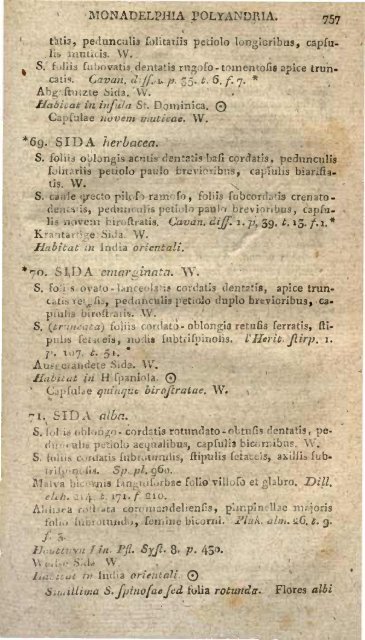 MONADELPHIA POLYANDRIA. 757
tatis, pedunculis solitariis petiolo longioribus, capsu-
lis muticis. W.
S. foliis subovatis dentatis rugoso-tomentosis apice trun-
catis. Cavan. diss. 1. p. 35. t. 6. f. 7. *
Abgestutzte Sida. W.
Habitat in insula St. Dominica. ⊙
Capsulae novem muticae. W.
*69. SIDA herbacea.
S. foliis oblongis acutis dentatis basi cordatis, pedunculis
solitariis petiolo paulo brevioribus, capsulis biarista-
tis. W.
S. caule erecto piloso ramoso, foliis subcordatis crenato-
dentatis, pedunculis petiolo paulo brevioribus, capsu-
lis novem birostratis. Cavan. diss. 1. p. 39. t. 13. f. 1. *
Krautartige Sida. W.
Habitat in India orientali.
*70. SIDA emarginata. W.
S. foliis ovato-lanceolatis cordatis dentatis, apice trun-
catis retusis, pedunculis petiolo duplo brevioribus, ca-
psulis birostratis. W.
S. (truncata) foliis cordato-oblongis retusis serratis, sti-
pulis setaceis, nodis subtrispinosis. l'Herit. stirp. 1.
p. 107. t. 51. *
Ausgerandete Sida. W.
Habitat in Hispaniola. ⊙
Capsulae quinque birostratae. W.
71. SIDA alba.
S. foliis oblongo-cordatis rotundato-obtusis dentatis, pe-
dunculis petiolo aequalibus, capsulis bicornibus. W.
S. foliis cordatis subrotundis, stipulis setaceis, axillis sub-
trispinosis. Sp. pl. 960.
Malva bicornis sanguisorbae folio villoso et glabro. Dill.
elth. 214. t. 171. f. 210.
Althaea coromandeliensis, pimpinellae majoris
folio subrotundo, semine bicorni. Pluk. alm. 26. t. 9.
f. 3.
Houttuyn Lin. Pfl. Syst. 8. p. 430.
Weisse Sida. W.
Habitat in India orientali. ⊙
Simillima S. spinosae sed folia rotunda. Flores albi